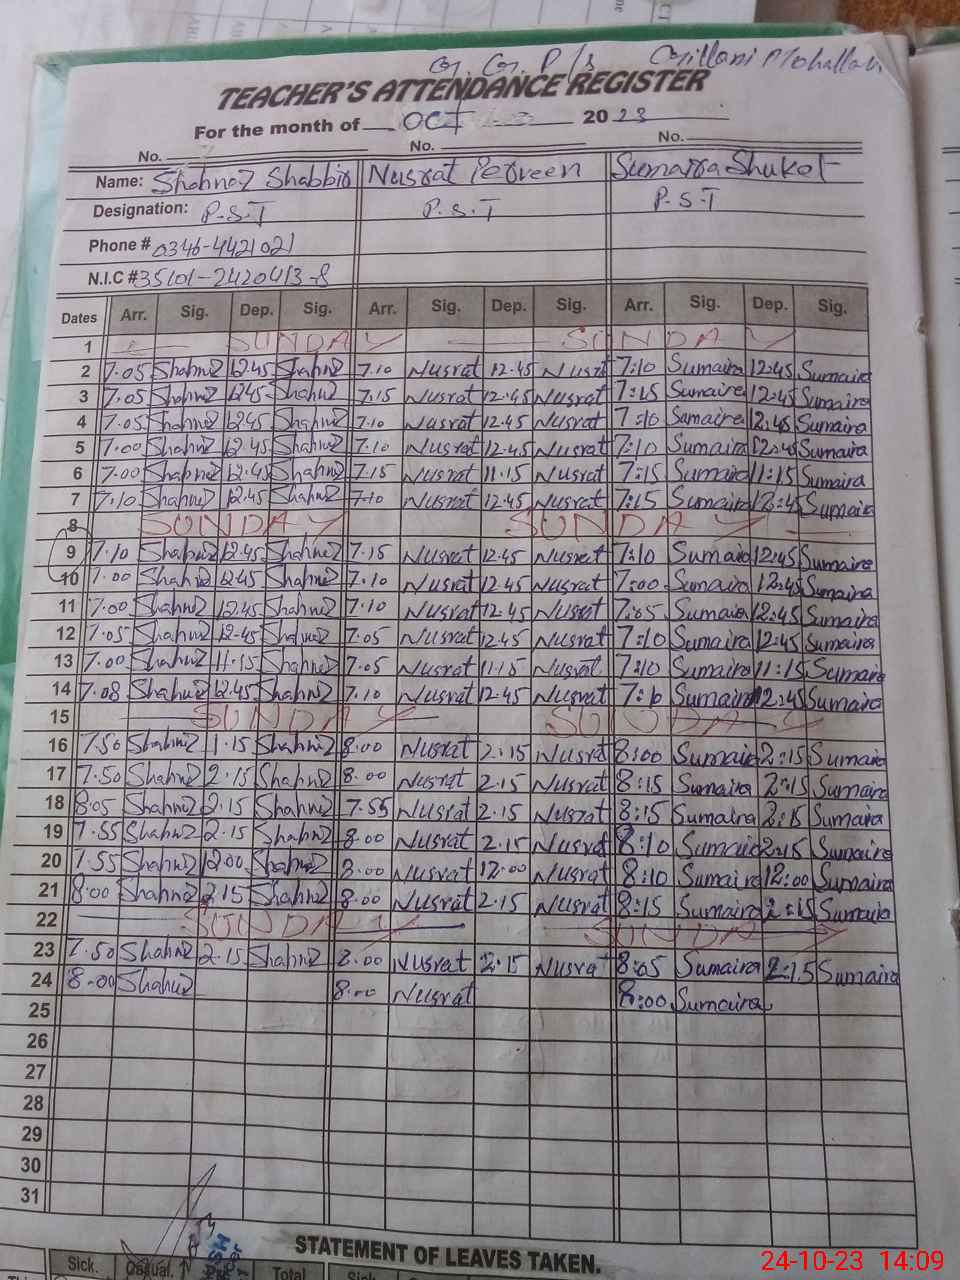 G. G. P/S Gillani Mohallah
TEACHER'S ATTENDANCE REGISTER
For the month of OCT 2023
No. No. No.
Name: Shahnaz Shabbir Nusrat Perveen Sumaira Shukat
Designation: P.S.T P.S.T P.S.T
Phone # 0346-4421021
N.I.C # 35101-2420413-8
Dates Arr. Sig. Dep. Sig. Arr. Sig. Dep. Sig. Arr. Sig. Dep. Sig.
1 SUNDAY SUNDAY
2 7.05 Shahnaz 12.45 Shahnaz 7.10 Nusrat 12.45 Nusrat 7:10 Sumaira 12:45 Sumaira
3 7.05 Shahnaz 12.45 Shahnaz 7.15 Nusrat 12.45 Nusrat 7:15 Sumaira 12:45 Sumaira
4 7.05 Shahnaz 12.45 Shahnaz 7.10 Nusrat 12.45 Nusrat 7:10 Sumaira 12:45 Sumaira
5 7.00 Shahnaz 12.45 Shahnaz 7.10 Nusrat 12.45 Nusrat 7:10 Sumaira 12:45 Sumaira
6 7.00 Shahnaz 12.45 Shahnaz 7.15 Nusrat 11.15 Nusrat 7:15 Sumaira 11:15 Sumaira
7 7.10 Shahnaz 12.45 Shahnaz 7.10 Nusrat 12.45 Nusrat 7:15 Sumaira 12:45 Sumaira
8 SUNDAY SUNDAY
9 7.10 Shahnaz 12.45 Shahnaz 7.15 Nusrat 12.45 Nusrat 7:10 Sumaira 12:45 Sumaira
10 7.00 Shahnaz 12.45 Shahnaz 7.10 Nusrat 12.45 Nusrat 7:00 Sumaira 12:45 Sumaira
11 7.00 Shahnaz 12.45 Shahnaz 7.10 Nusrat 12.45 Nusrat 7:05 Sumaira 12:45 Sumaira
12 7.05 Shahnaz 12.45 Shahnaz 7.05 Nusrat 12.45 Nusrat 7:10 Sumaira 12:45 Sumaira
13 7.00 Shahnaz 11.15 Shahnaz 7.05 Nusrat 11.15 Nusrat 7:10 Sumaira 11:15 Sumaira
14 7.08 Shahnaz 12.45 Shahnaz 7.10 Nusrat 12.45 Nusrat 7:10 Sumaira 12:45 Sumaira
15 SUNDAY SUNDAY
16 7.50 Shahnaz 1.15 Shahnaz 8.00 Nusrat 2.15 Nusrat 8:00 Sumaira 2:15 Sumaira
17 7.50 Shahnaz 2.15 Shahnaz 8.00 Nusrat 2.15 Nusrat 8:15 Sumaira 2:15 Sumaira
18 8.05 Shahnaz 2.15 Shahnaz 7.55 Nusrat 2.15 Nusrat 8:15 Sumaira 2:15 Sumaira
19 7.55 Shahnaz 2.15 Shahnaz 8.00 Nusrat 2.15 Nusrat 8:10 Sumaira 2:15 Sumaira
20 7.55 Shahnaz 12.00 Shahnaz 8.00 Nusrat 12.00 Nusrat 8:10 Sumaira 12:00 Sumaira
21 8.00 Shahnaz 2.15 Shahnaz 8.00 Nusrat 2.15 Nusrat 8:15 Sumaira 2:15 Sumaira
22 SUNDAY SUNDAY
23 7.50 Shahnaz 2.15 Shahnaz 8.00 Nusrat 2.15 Nusrat 8:05 Sumaira 2:15 Sumaira
24 8.00 Shahnaz 8.00 Nusrat 8:00 Sumaira
25
26
27
28
29
30
31
STATEMENT OF LEAVES TAKEN.
Sick. Casual. Total Sick.
24-10-23 14:09